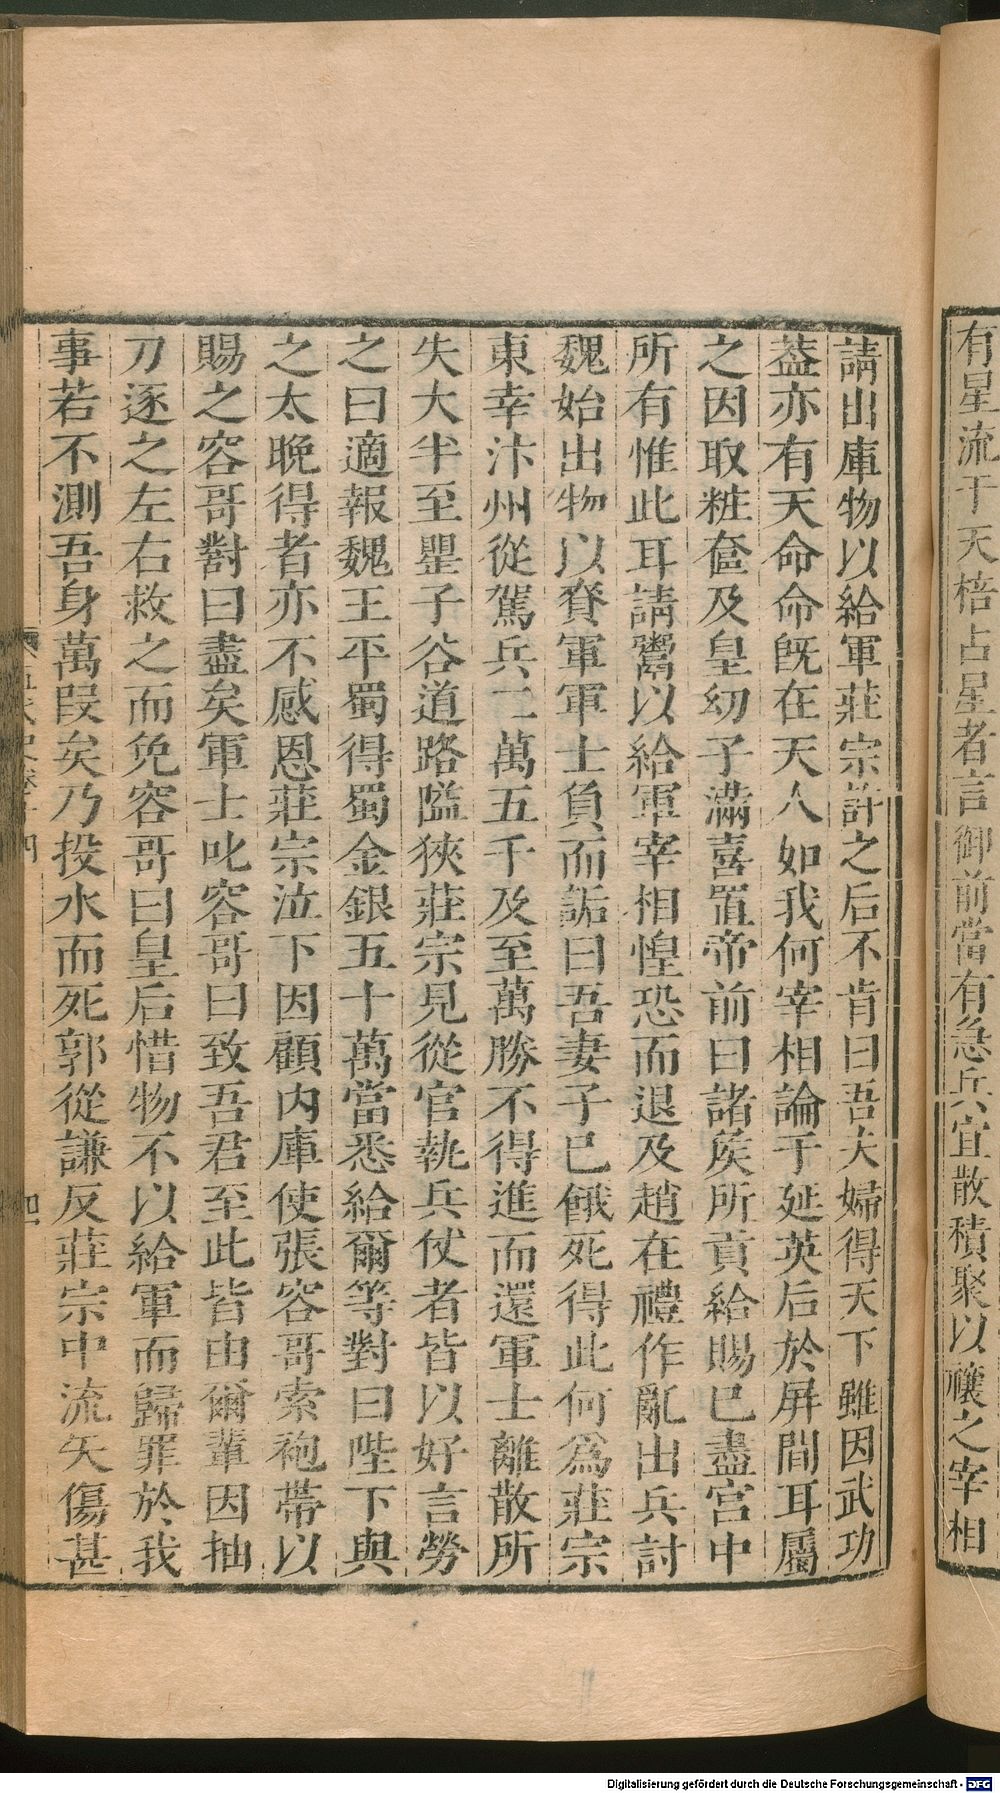 有星流于天棓占星者言御前當有急兵宜散積聚以禳之宰相
請出庫物以給軍莊宗許之后不肯曰吾夫婦得天下雖因武功
葢亦有天命命旣在天人如我何宰相論于延英后於屏間耳屬
之因取粧奩及皇幼子滿喜置帝前曰諸矦所貢給賜已盡宮中
所有惟此耳請鬻以給軍宰相惶恐而退及趙在禮作亂出兵討
魏始出物以賚軍軍士負而詬曰吾妻子已餓死得此何爲莊宗
東幸汴州從駕兵二萬五千及至萬勝不得進而還軍士離散所
失大半至罌子谷道路隘狹莊宗見從官執兵仗者皆以好言勞
之曰適報魏王平蜀得蜀金銀五十萬當悉給爾等對曰陛下與
之太晚得者亦不感恩莊宗泣下因顧内庫使張容哥索袍帶以
賜之容哥對曰盡矣軍士叱容哥曰致吾君至此皆由爾輩因抽
刀逐之左右救之而免容哥曰皇后惜物不以給軍而歸罪於我
事若不測吾身萬段矣乃投水而死郭從謙反莊宗中流矢傷甚
四
Digitalisierung gefördert durch die Deutsche Forschungsgemeinschaft - DFG